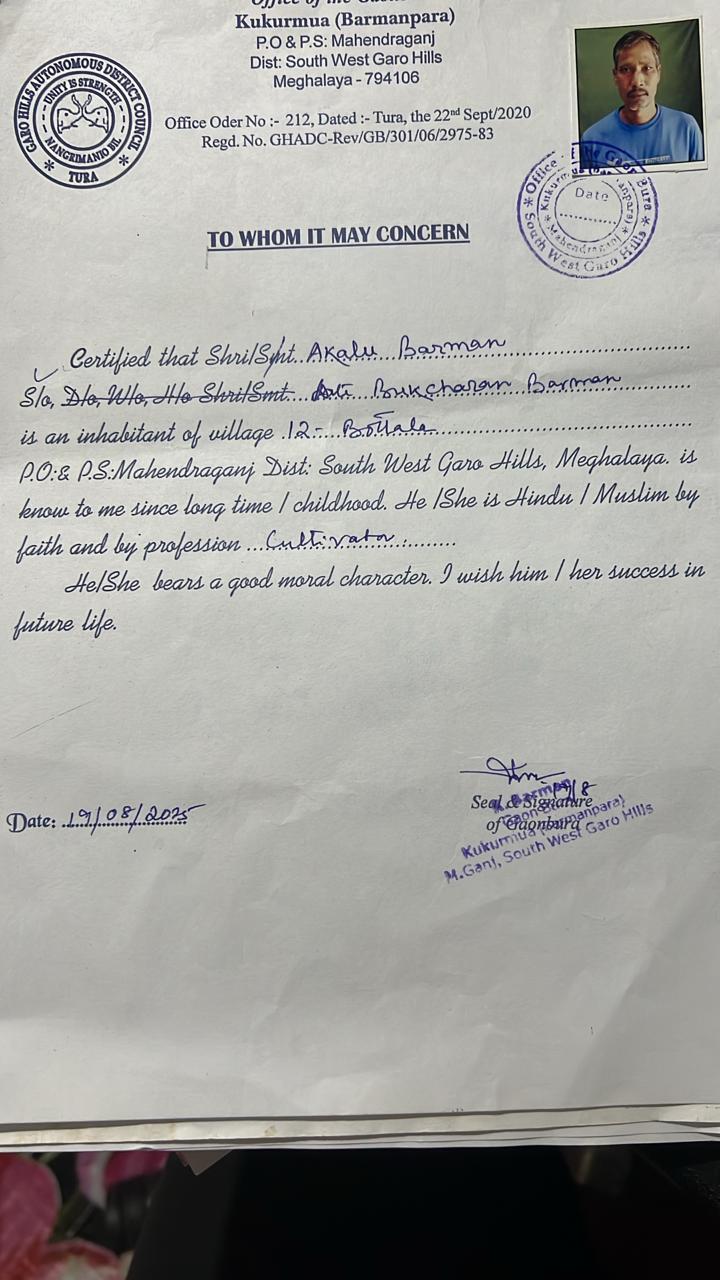 Office of the Gaonbura
Kukurmua (Barmanpara)
P.O & P.S: Mahendraganj
Dist: South West Garo Hills
Meghalaya - 794106
GARO HILLS AUTONOMOUS DISTRICT COUNCIL
UNITY IS STRENGTH
TURA
Office Oder No :- 212, Dated :- Tura, the 22nd Sept/2020
Regd. No. GHADC-Rev/GB/301/06/2975-83
Date
Mahendraganj
South West Garo Hills
TO WHOM IT MAY CONCERN
Certified that Shri/Smt. Akalu Barman
S/o, D/o, W/o, H/o Shri/Smt. Bukcharan Barman
is an inhabitant of village 12- Bottala
P.O:& P.S:Mahendraganj Dist: South West Garo Hills, Meghalaya. is
know to me since long time / childhood. He /She is Hindu / Muslim by
faith and by profession ...Cultivator
He/She bears a good moral character. I wish him / her success in
future life.
Date: 19/08/2025
Seal & Signature
of Gaonbura
Barman
Kukurmua (Barmanpara)
M.Ganj, South West Garo Hills